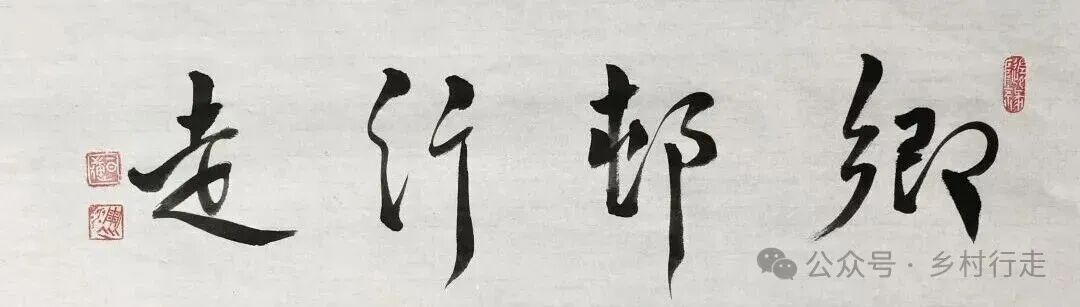 鄉邨行走
公众号 · 乡村行走